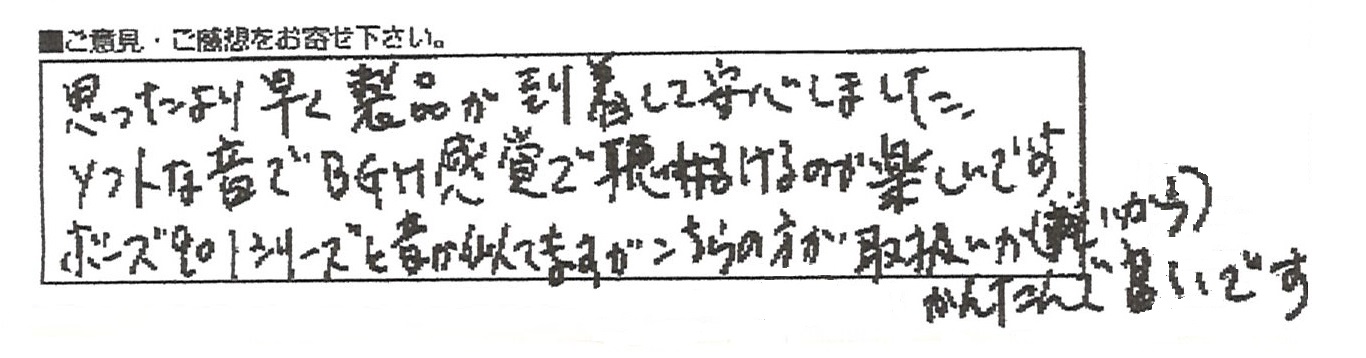 ■ご意見・ご感想をお寄せ下さい。
思ったより早く製品が到着して安心しました。
ソフトな音でBGM感覚で聴けるのが楽しいです
ボーズ901シリーズと音が似てますがこちらの方が取扱いが(軽いから)
かんたんで良いです